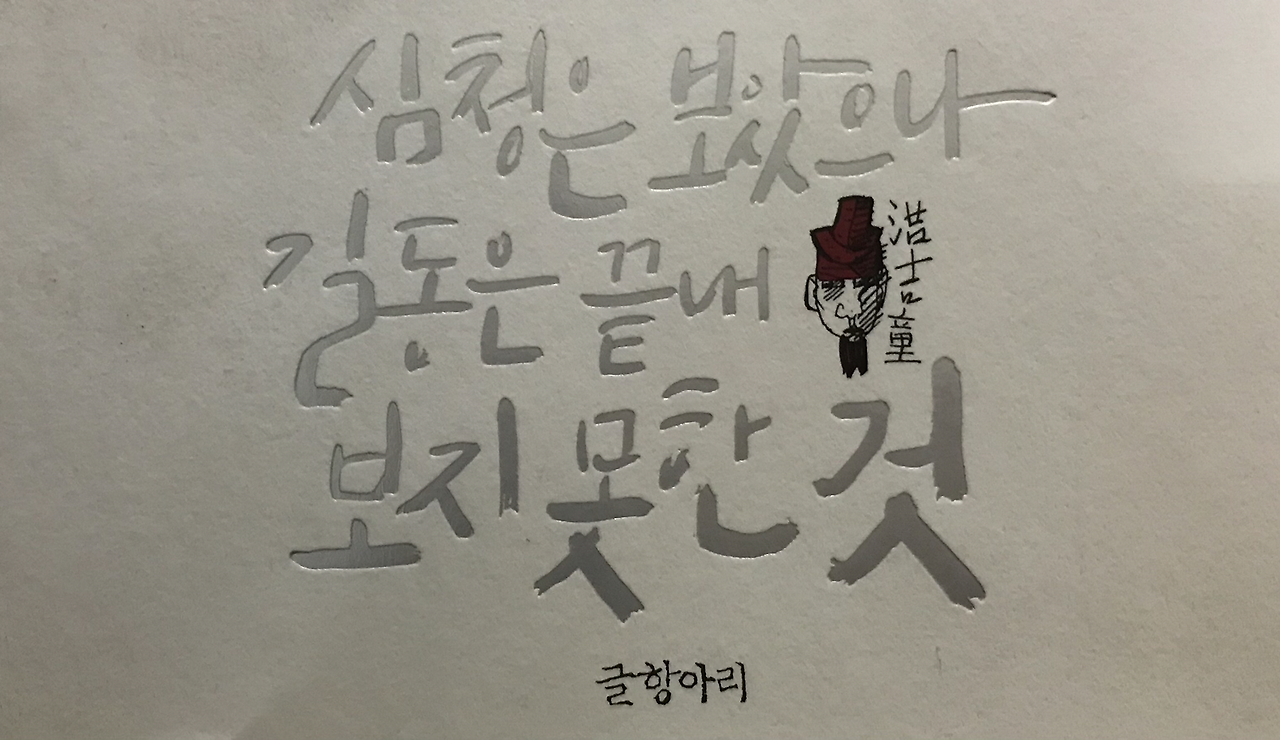 심청은 보았으나
길동은 끝내
浩吉童
보지 못한 것
글항아리